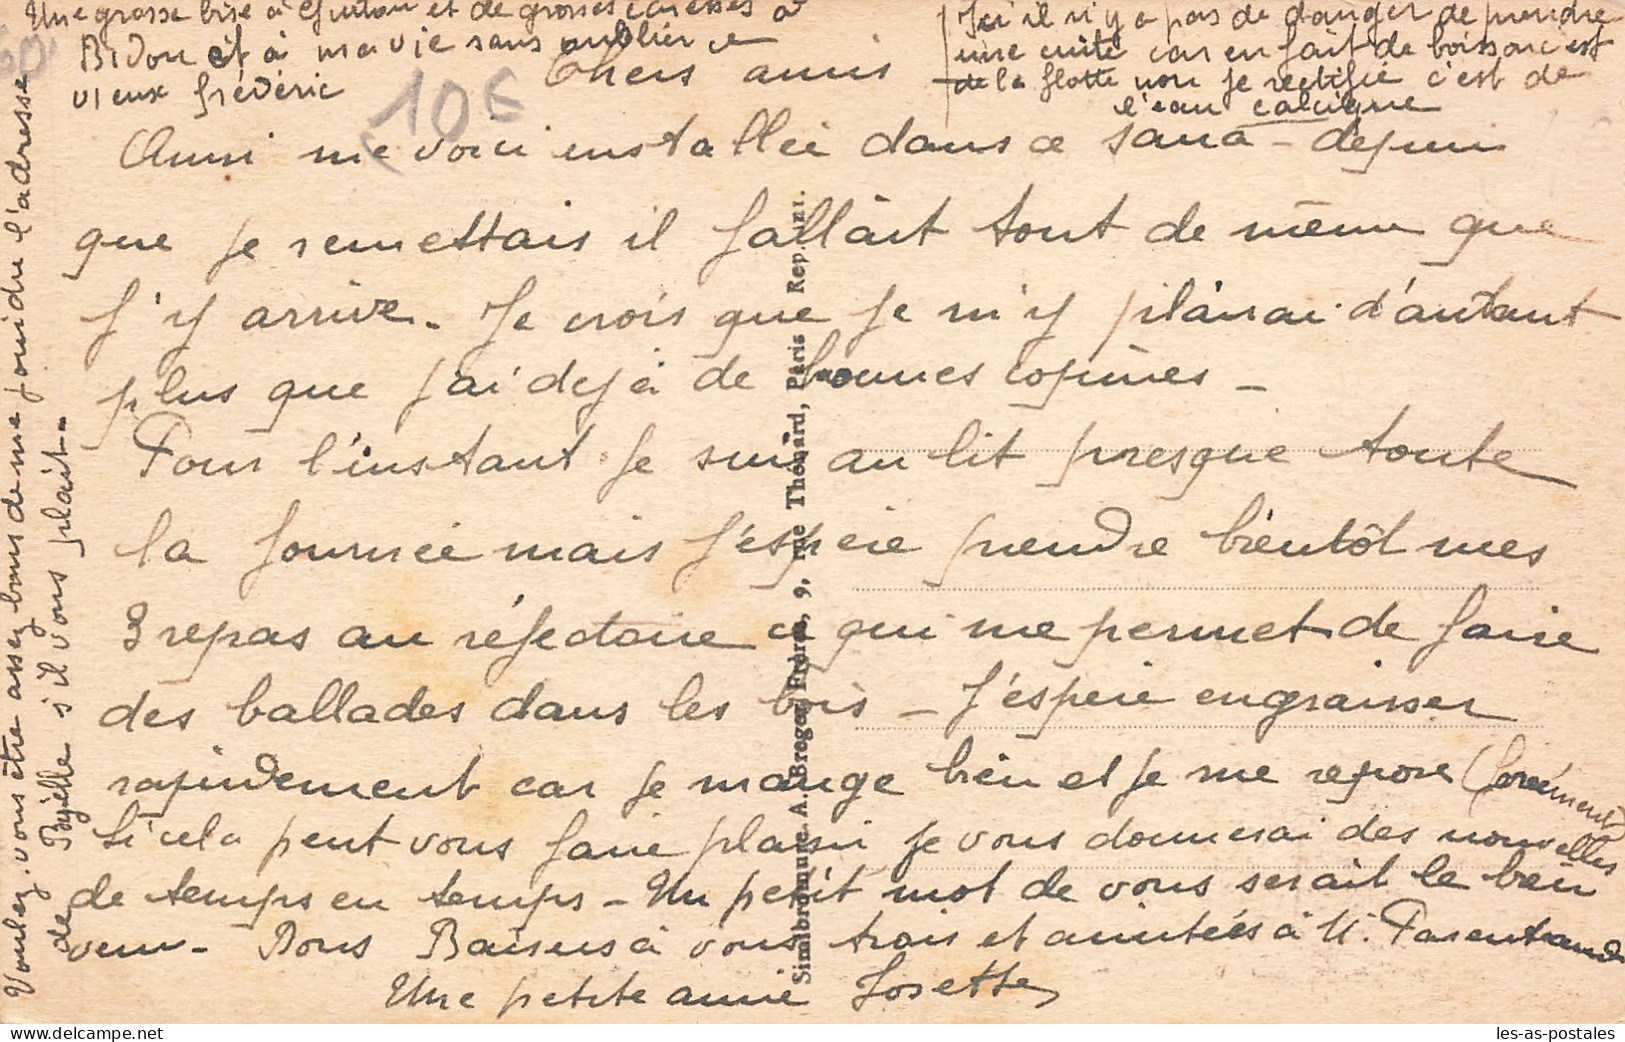 Une grosse bise à et de grosses caresses à
Bidou et à ma vie sans oublier ce
vieux frédéric
Ici il n'y a pas de danger de prendre
une cuite car en fait de boisson c'est
de la flotte non je rectifie c'est de
l'eau calcique
10€
Chers amis
Ainsi me voici installée dans ce sana - depuis
que je remettais il fallait tout de même que
j'y arrive. Je crois que je m'y plairai d'autant
plus que j'ai dejà de bonnes copines -
Pour l'instant je suis au lit presque toute
la journée mais j'espère prendre bientôt mes
3 repas au réfectoire ce qui me permet de faire
des ballades dans les bois - J'espère engraisser
rapidement car je mange bien et je me repose (forcément
Si cela peut vous faire plaisir je vous donnerai des nouvelles
de temps en temps - Un petit mot de vous serait le bien
venu - Bons Baisers à vous trois et amitiés à M. Parent
Une petite amie Josette
Voulez-vous être assez bons de me joindre l'adresse
de s'il vous plait -
Simibromure A. Breger Frères, 9, rue Thouard, Paris Rep. Int.
www.delcampe.net
les-as-postales